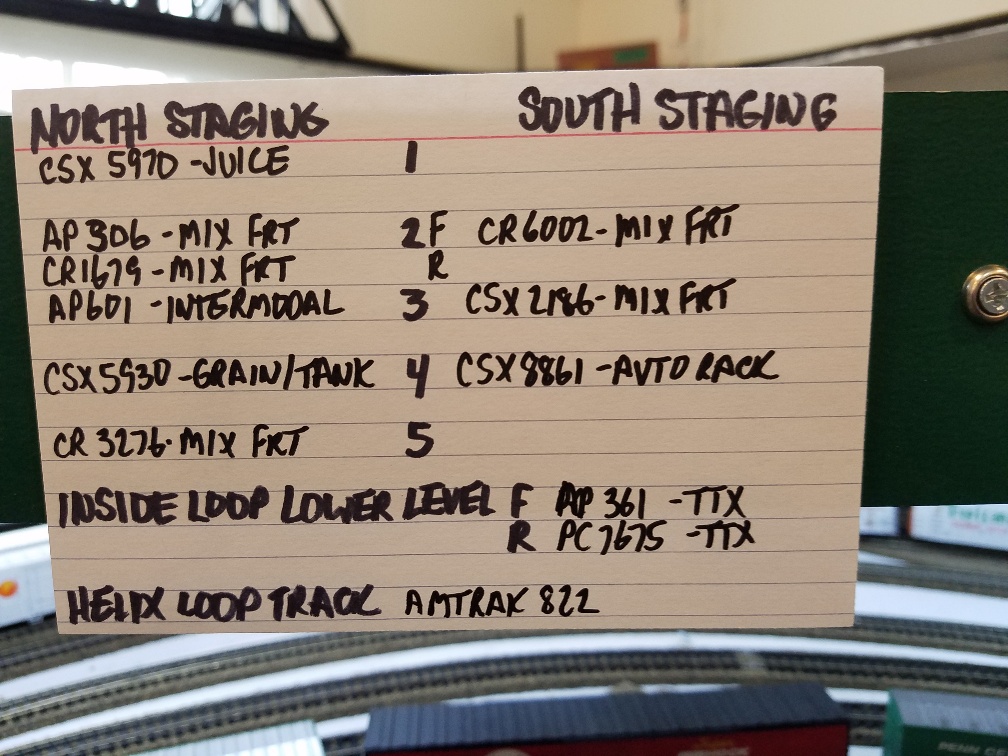 NORTH STAGING SOUTH STAGING
CSX 5970 -JUICE 1
AP 306 - MIX FRT 2 F CR6002- MIX FRT
CR1679 - MIX FRT R
AP601 - INTERMODAL 3 CSX 2186- MIX FRT
CSX5930 -GRAIN/TANK 4 CSX8861 -AUTO RACK
CR 3276- MIX FRT 5
INSIDE LOOP LOWER LEVEL F AP 361 -TTX
R PC7675 -TTX
HELIX LOOP TRACK AMTRAK 822